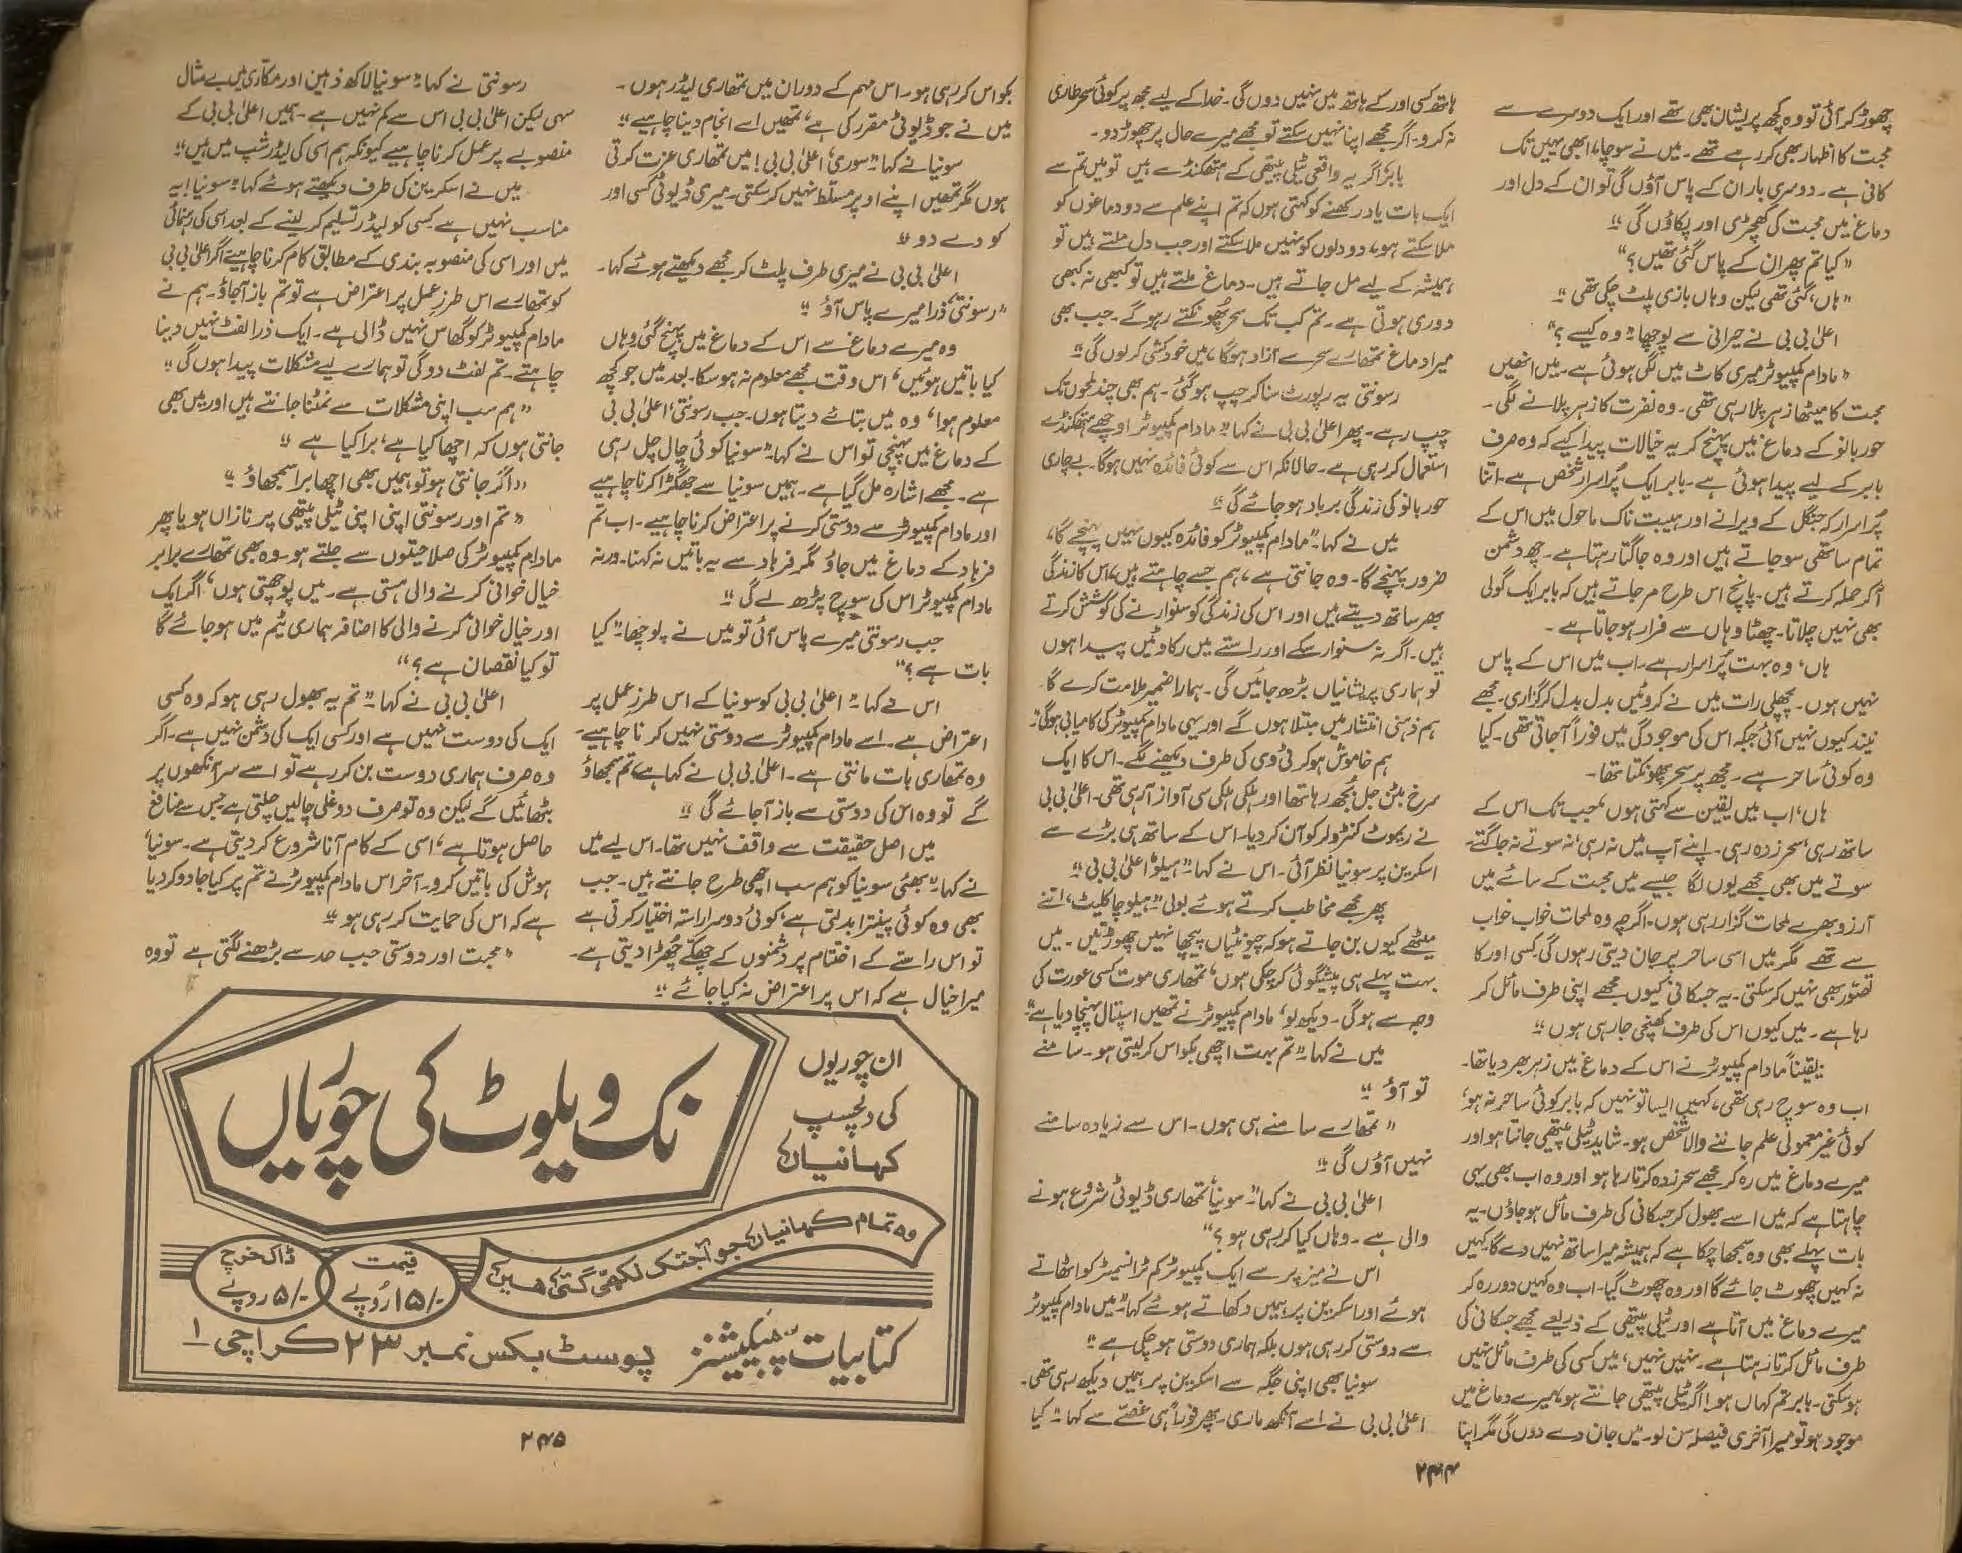 چھوڑ کر آئی تو وہ کچھ پریشان بھی تھے اور ایک دوسرے سے
محبت کا اظہار بھی کر رہے تھے۔ میں نے سوچا، ابھی یہیں تک
کافی ہے۔ دوسری بار ان کے پاس آؤں گی تو ان کے دل اور
دماغ میں محبت کی کھچڑی اور پکاؤں گی۔"
"کیا تم پھر ان کے پاس گئی تھیں؟"
"ہاں، گئی تھی لیکن وہاں بازی پلٹ چکی تھی۔"
اعلیٰ بی بی نے حیرانی سے پوچھا۔ "وہ کیسے؟"
"مادام کمپیوٹر میری کاٹ میں لگی ہوئی ہے۔ میں انھیں
محبت کا میٹھا زہر پلا رہی تھی۔ وہ نفرت کا زہر پلانے لگی۔
حور بانو کے دماغ میں پہنچ کر یہ خیالات پیدا کیے کہ وہ صرف
بابر کے لیے پیدا ہوئی ہے۔ بابر ایک پُراسرار شخص ہے۔ اتنا
پُراسرار کہ جنگل کے ویرانے اور ہیبت ناک ماحول میں اس کے
تمام ساتھی سو جاتے ہیں اور وہ جاگتا رہتا ہے۔ چھ دشمن
آکر حملہ کرتے ہیں۔ پانچ اس طرح مر جاتے ہیں کہ بابر ایک گولی
بھی نہیں چلاتا۔ چھٹا وہاں سے فرار ہو جاتا ہے۔
ہاں، وہ بہت پُراسرار ہے۔ اب میں اس کے پاس
نہیں ہوں۔ پچھلی رات میں نے کروٹیں بدل بدل کر گزاری۔ مجھے
نیند کیوں نہیں آئی جبکہ اس کی موجودگی میں فوراً آجاتی تھی۔ کیا
وہ کوئی ساحر ہے۔ مجھ پر سحر پھونکتا تھا۔
ہاں، اب میں یقین سے کہتی ہوں، جب تک اس کے
ساتھ رہی، سحر زدہ رہی۔ اپنے آپ میں نہ رہی، نہ سوتے نہ جاگتے۔
سوتے میں بھی مجھے یوں لگا جیسے میں محبت کے سائے میں
آرزو بھرے لمحات گزار رہی ہوں۔ اگرچہ وہ لمحات خواب خواب
سے تھے مگر میں اسی ساحر پر جان دیتی رہوں گی۔ کسی اور کا
تصور بھی نہیں کر سکتی۔ یہ جسکانی کیوں مجھے اپنی طرف مائل کر
رہا ہے۔ میں کیوں اس کی طرف کھنچی جا رہی ہوں۔"
یقیناً مادام کمپیوٹر نے اس کے دماغ میں زہر بھر دیا تھا۔
اب وہ سوچ رہی تھی، کہیں ایسا تو نہیں کہ بابر کوئی ساحر نہ ہو،
کوئی غیر معمولی علم جاننے والا شخص ہو۔ شاید ٹیلی پیتھی جانتا ہو اور
میرے دماغ میں رہ کر مجھے سحر زدہ کرتا رہا ہو اور وہ اب بھی یہی
چاہتا ہے کہ میں اسے بھول کر جسکانی کی طرف مائل ہو جاؤں۔ یہ
بات پہلے بھی وہ سمجھا چکا ہے کہ ہمیشہ میرا ساتھ نہیں دے گا کہیں
نہ کہیں چھوٹ جائے گا اور وہ چھوٹ گیا۔ اب وہ کہیں دور رہ کر
میرے دماغ میں آتا ہے اور ٹیلی پیتھی کے ذریعے مجھے جسکانی کی
طرف مائل کرتا رہتا ہے۔ نہیں نہیں، میں کسی کی طرف مائل نہیں
ہو سکتی۔ بابر تم کہاں ہو! اگر ٹیلی پیتھی جانتے ہو، میرے دماغ میں
موجود ہو تو میرا آخری فیصلہ سن لو۔ میں جان دے دوں گی مگر اپنا
ہاتھ کسی اور کے ہاتھ میں نہیں دوں گی۔ خدا کے لیے مجھ پر کوئی سحر طاری
نہ کرو۔ اگر مجھے اپنا نہیں سکتے تو مجھے میرے حال پر چھوڑ دو۔
بابر! اگر یہ واقعی ٹیلی پیتھی کے ہتھکنڈے ہیں تو میں تم سے
ایک بات یاد رکھنے کو کہتی ہوں کہ تم اپنے علم سے دو دماغوں کو
ملا سکتے ہو، دو دلوں کو نہیں ملا سکتے اور جب دل ملتے ہیں تو
ہمیشہ کے لیے مل جاتے ہیں۔ دماغ ملتے ہیں تو کبھی نہ کبھی
دوری ہوتی ہے۔ تم کب تک سحر پھونکتے رہو گے۔ جب بھی
میرا دماغ تمھارے سحر سے آزاد ہو گا، میں خودکشی کر لوں گی۔"
رسونتی یہ رپورٹ سنا کر چپ ہو گئی۔ ہم بھی چند لمحوں تک
چپ رہے۔ پھر اعلیٰ بی بی نے کہا۔ "مادام کمپیوٹر اوچھے ہتھکنڈے
استعمال کر رہی ہے۔ حالانکہ اس سے کوئی فائدہ نہیں ہوگا۔ بے چاری
حور بانو کی زندگی برباد ہو جائے گی۔"
میں نے کہا۔ "مادام کمپیوٹر کو فائدہ کیوں نہیں پہنچے گا،
ضرور پہنچے گا۔ وہ جانتی ہے، ہم جسے چاہتے ہیں، اس کا زندگی
بھر ساتھ دیتے ہیں اور اس کی زندگی کو سنوارنے کی کوشش کرتے
ہیں۔ اگر نہ سنوار سکے اور راستے میں رکاوٹیں پیدا ہوں
تو ہماری پریشانیاں بڑھ جائیں گی۔ ہمارا ضمیر ملامت کرے گا۔
ہم ذہنی انتشار میں مبتلا ہوں گے اور یہی مادام کمپیوٹر کی کامیابی ہوگی۔"
ہم خاموش ہو کر ٹی وی کی طرف دیکھنے لگے۔ اس کا ایک
سرخ بٹن جل بجھ رہا تھا اور ہلکی ہلکی سی آواز آرہی تھی۔ اعلیٰ بی بی
نے ریموٹ کنٹرولر کو آن کر دیا۔ اس کے ساتھ ہی بڑے سے
اسکرین پر سونیا نظر آئی۔ اس نے کہا۔ "ہیلو، اعلیٰ بی بی۔"
پھر مجھے مخاطب کرتے ہوئے بولی۔ "ہیلو چاکلیٹ، اتنے
میٹھے کیوں بن جاتے ہو کہ چیونٹیاں پیچھا نہیں چھوڑتیں۔ میں
بہت پہلے ہی پیشگوئی کر چکی ہوں، تمھاری موت کسی عورت کی
وجہ سے ہوگی۔ دیکھ لو، مادام کمپیوٹر نے تمھیں اسپتال پہنچا دیا ہے۔"
میں نے کہا۔ "تم بہت اچھی بکواس کر لیتی ہو۔ سامنے
تو آؤ۔"
"تمھارے سامنے ہی ہوں۔ اس سے زیادہ سامنے
نہیں آؤں گی۔"
اعلیٰ بی بی نے کہا۔ "سونیا! تمھاری ڈیوٹی شروع ہونے
والی ہے۔ وہاں کیا کر رہی ہو؟"
اس نے میز پر سے ایک کمپیوٹر کم ٹرانسمیٹر کو اٹھاتے
ہوئے اور اسکرین پر ہمیں دکھاتے ہوئے کہا۔ "میں مادام کمپیوٹر
سے دوستی کر رہی ہوں بلکہ ہماری دوستی ہو چکی ہے۔"
سونیا بھی اپنی جگہ سے اسکرین پر ہمیں دیکھ رہی تھی۔
اعلیٰ بی بی نے اسے آنکھ ماری۔ پھر فوراً ہی غصے سے کہا۔ "کیا
۲۴۴
بکواس کر رہی ہو۔ اس مہم کے دوران میں تمھاری لیڈر ہوں۔
میں نے جو ڈیوٹی مقرر کی ہے، تمھیں اسے انجام دینا چاہیے۔"
سونیا نے کہا۔ "سوری، اعلیٰ بی بی! میں تمھاری عزت کرتی
ہوں مگر تمھیں اپنے اوپر مسلط نہیں کر سکتی۔ میری ڈیوٹی کسی اور
کو دے دو۔"
اعلیٰ بی بی نے میری طرف پلٹ کر مجھے دیکھتے ہوئے کہا۔
"رسونتی! ذرا میرے پاس آؤ۔"
وہ میرے دماغ سے اس کے دماغ میں پہنچ گئی وہاں
کیا باتیں ہوئیں، اس وقت مجھے معلوم نہ ہو سکا۔ بعد میں جو کچھ
معلوم ہوا، وہ میں بتائے دیتا ہوں۔ جب رسونتی، اعلیٰ بی بی
کے دماغ میں پہنچی تو اس نے کہا۔ "سونیا کوئی چال چل رہی
ہے۔ مجھے اشارہ مل گیا ہے۔ ہمیں سونیا سے جھگڑا کرنا چاہیے
اور مادام کمپیوٹر سے دوستی کرنے پر اعتراض کرنا چاہیے۔ اب تم
فرہاد کے دماغ میں جاؤ مگر فرہاد سے یہ باتیں نہ کہنا۔ ورنہ
مادام کمپیوٹر اس کی سوچ پڑھ لے گی۔"
جب رسونتی میرے پاس آئی تو میں نے پوچھا۔ "کیا
بات ہے؟"
اس نے کہا۔ "اعلیٰ بی بی کو سونیا کے اس طرز عمل پر
اعتراض ہے۔ اسے مادام کمپیوٹر سے دوستی نہیں کرنا چاہیے۔
وہ تمھاری بات مانتی ہے۔ اعلیٰ بی بی نے کہا ہے، تم سمجھاؤ
گے تو وہ اس کی دوستی سے باز آجائے گی۔"
میں اصل حقیقت سے واقف نہیں تھا۔ اس لیے میں
نے کہا۔ "بھئی سونیا کو ہم سب اچھی طرح جانتے ہیں۔ جب
بھی وہ کوئی پینترا بدلتی ہے، کوئی دوسرا راستہ اختیار کرتی ہے
تو اس راستے کے اختتام پر دشمنوں کے چھکے چھڑا دیتی ہے۔
میرا خیال ہے کہ اس پر اعتراض نہ کیا جائے۔"
رسونتی نے کہا۔ "سونیا لاکھ ذہین اور مکاری میں بے مثال
سہی لیکن اعلیٰ بی بی اس سے کم نہیں ہے۔ ہمیں اعلیٰ بی بی کے
منصوبے پر عمل کرنا چاہیے کیونکہ ہم اسی کی لیڈر شپ میں ہیں۔"
میں نے اسکرین کی طرف دیکھتے ہوئے کہا۔ "سونیا! یہ
مناسب نہیں ہے کسی کو لیڈر تسلیم کر لینے کے بعد اسی کی رہنمائی
میں اور اسی کی منصوبہ بندی کے مطابق کام کرنا چاہیے اگر اعلیٰ بی بی
کو تمھارے اس طرز عمل پر اعتراض ہے تو تم باز آجاؤ۔ ہم نے
مادام کمپیوٹر کو گھاس نہیں ڈالی ہے۔ ایک ذرا لفٹ نہیں دینا
چاہتے۔ تم لفٹ دو گی تو ہمارے لیے مشکلات پیدا ہوں گی۔"
"ہم سب اپنی مشکلات سے نمٹنا جانتے ہیں اور میں بھی
جانتی ہوں کہ اچھا کیا ہے، برا کیا ہے۔"
"اگر جانتی ہو تو ہمیں بھی اچھا برا سمجھاؤ۔"
"تم اور رسونتی اپنی اپنی ٹیلی پیتھی پر نازاں ہو یا پھر
مادام کمپیوٹر کی صلاحیتوں سے جلتے ہو۔ وہ بھی تمھارے برابر
خیال خوانی کرنے والی ہستی ہے۔ میں پوچھتی ہوں، اگر ایک
اور خیال خوانی کرنے والی کا اضافہ ہماری ٹیم میں ہو جائے گا
تو کیا نقصان ہے؟"
اعلیٰ بی بی نے کہا۔ "تم یہ بھول رہی ہو کہ وہ کسی
ایک کی دوست نہیں ہے اور کسی ایک کی دشمن نہیں ہے۔ اگر
وہ صرف ہماری دوست بن کر رہے تو اسے سر آنکھوں پر
بٹھائیں گے لیکن وہ تو صرف دوغلی چالیں چلتی ہے جس سے منافع
حاصل ہوتا ہے، اسی کے کام آنا شروع کر دیتی ہے۔ سونیا،
ہوش کی باتیں کرو۔ آخر اس مادام کمپیوٹر نے تم پر کیا جادو کر دیا
ہے کہ اس کی حمایت کر رہی ہو۔"
"محبت اور دوستی جب حد سے بڑھنے لگتی ہے تو وہ
ان چوریوں
کی دلچسپ
کہانیاں
نک ویلوٹ کی چوریاں
وہ تمام کہانیاں جو آجتک لکھی گئی ہیں
قیمت
۱۵/- روپے
ڈاک خرچ
۵/- روپے
کتابیات پبلیکیشنز پوسٹ بکس نمبر ۲۳ کراچی ۱
۲۴۵